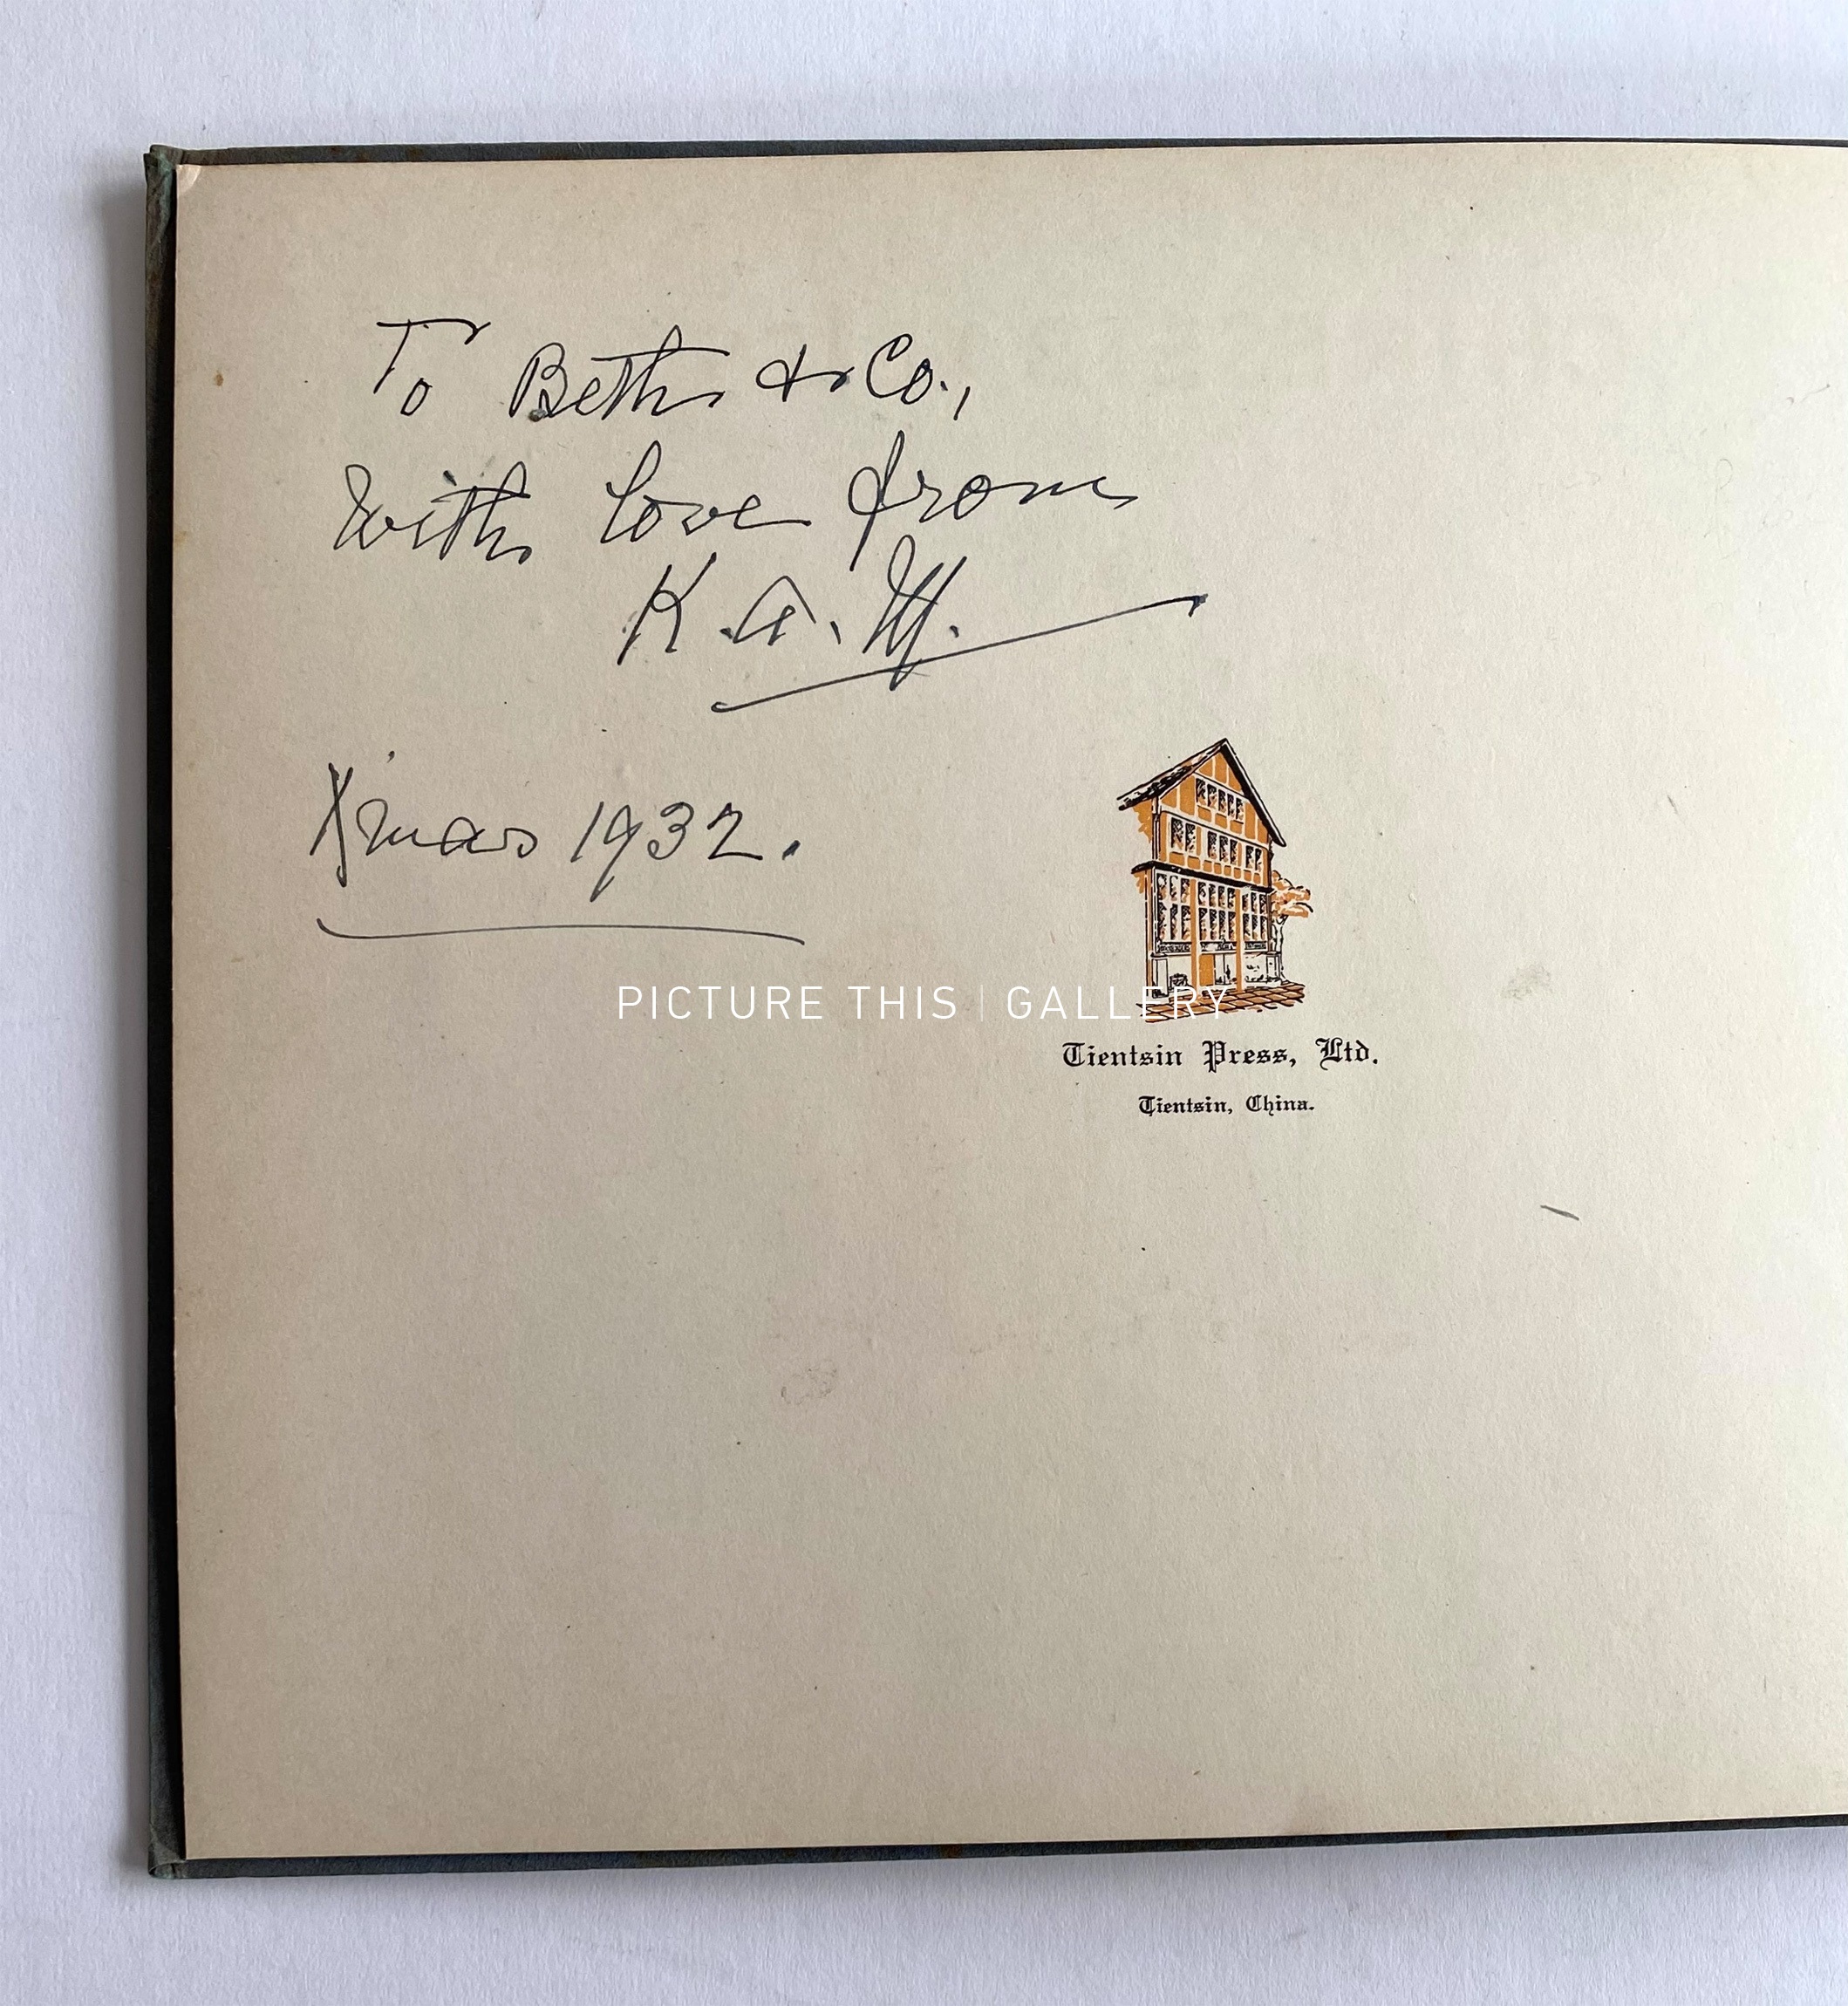 To Beth & Co.,
With love from
K.A.M.
X'mas 1932.
PICTURE THIS | GALLERY
Tientsin Press, Ltd.
Tientsin, China.